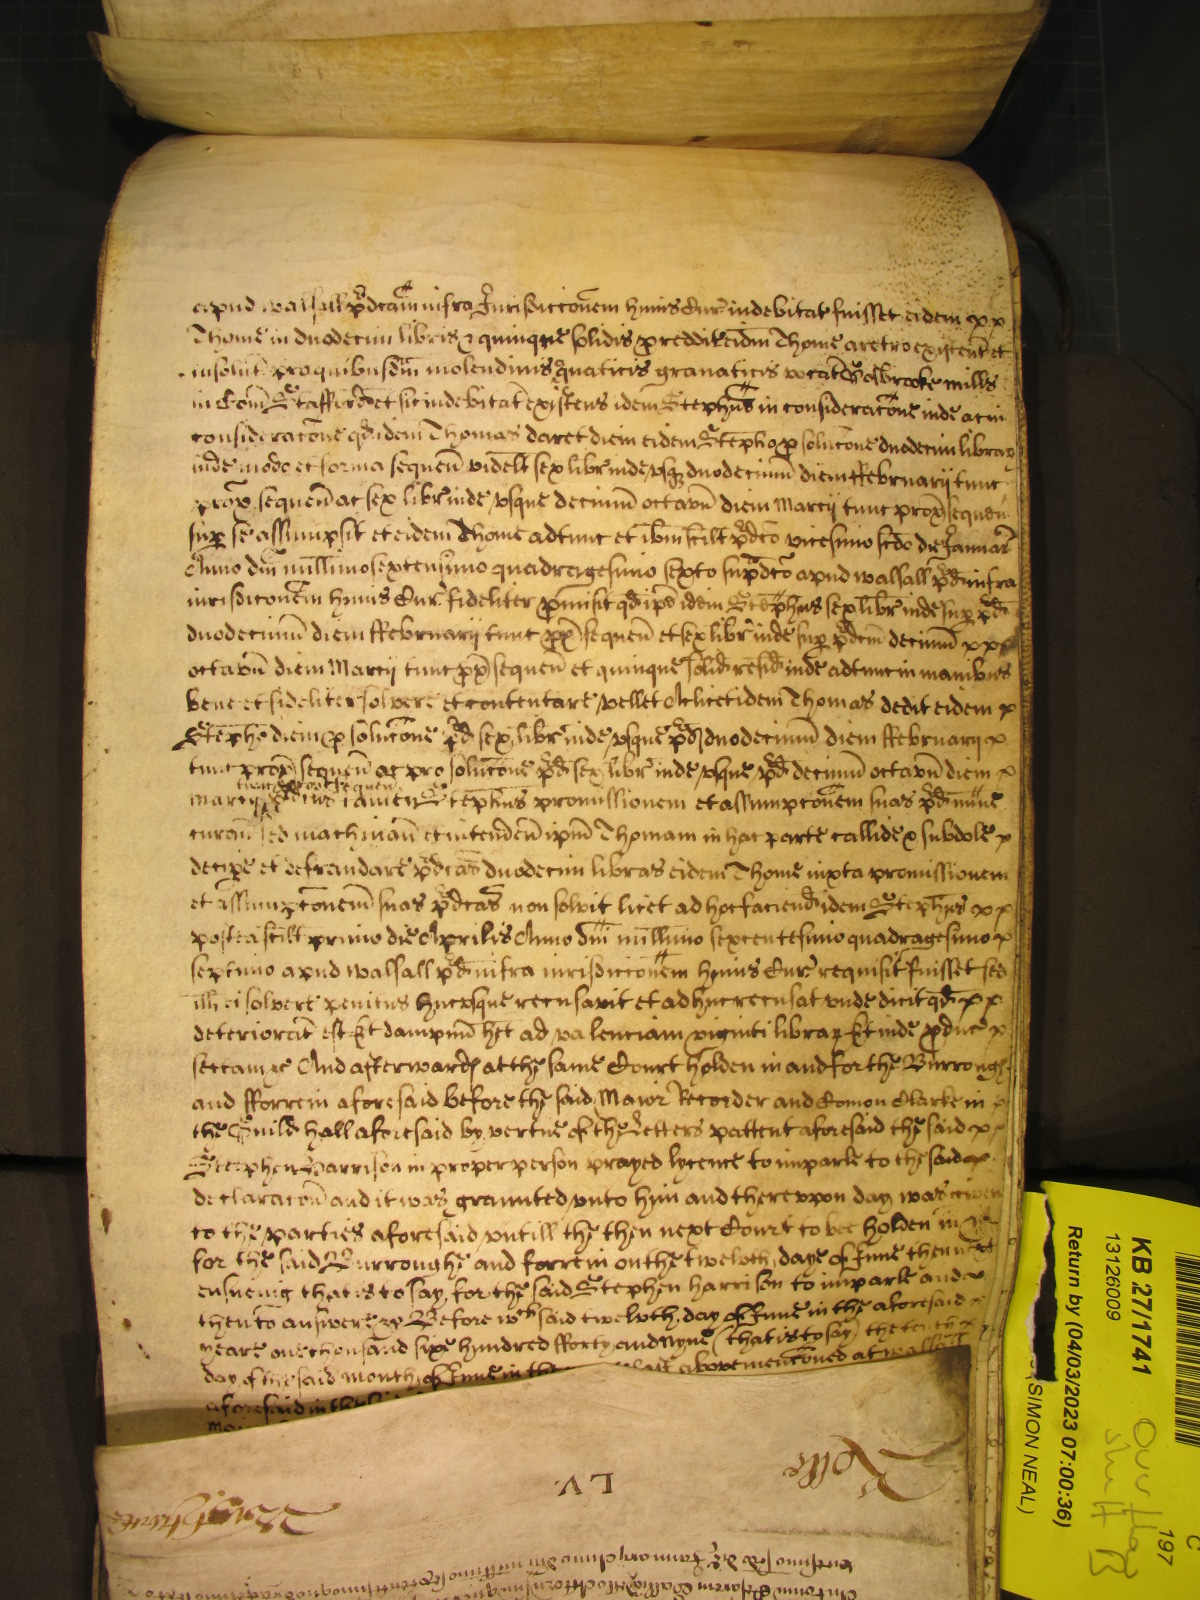 apud Walsall p̃dcam infra Jurisdicconem huius Cur̃ indebitat̃ fuisset eidem
Thome in duodecim libris & quinque solidis p reddit̃ eidm̃ Thome aretro existent̃ et
insolut̃ pro quibusdm̃ molendinis aquaticis granaticis vocat̃ mills
in Com̃ Stafford̃ et sic indebitat̃ existens idem Stephus in consideracone inde ac in
consideracone qd̃ idem Thomas daret diem eidem Stepho p solucone duodecim librar
inde modo et forma sequen̄ videlt̃ sex libr̃ inde vsqz duodecimū diem ffebruarij tunc
prox̃ sequen̄ ac sex libr̃ inde vsque decimū octavū diem Marcij tunc prox̃ sequen̄
sup se assumpsit et eidem Thome adtunc et ib̃m scilt̃ p̃dco vicesimo scdo die Januar̃
Anno dm̃ millimo sexcentesimo quadragesimo sexto sup̃dco apud Walsall p̃d infra
iurisdicconem huius Cur̃ fideliter p̃misit qd̃ ip̃e idem Stephus sex libr̃ inde sup p̃d
duodecimū diem ffebruarij tunc p̃x̃ sequen̄ et sex libr̃ inde sup p̃dcm̃ decimū
octavū diem Marcij tunc p̃x̃ sequen̄ et quinque solid̃ resid̃ inde adtunc in manibus
bene et fideliter solvere et contentare vellet Ac licet idem Thomas dedit eidem
Stepho diem p solucone p̃d sex libr̃ inde vsque p̃d duodecimū diem ffebruarij
tunc prox̃ sequen̄ ac pro solucone p̃d sex libr̃ inde vsque p̃d decimū octavū diem
tunc prox̃ sequen̄
Marcij tamen Stephus promissionem et assumpconem suas p̃d minime
curan̄ sed machinan̄ et intenden̄ ip̃m Thomam in hac parte callide & subdole
decipe et defraudare p̃dcas duodecim libras eidem Thome iuxta promissionem
et assumpconem suas p̃dcas non solvit licet ad hoc faciend̃ idem Stephus
postea scilt̃ primo die Aprilis Anno dm̃ millimo sexcentesimo quadragesimo
septimo apud Walsall p̃d infra iurisdicconem huius Cur̃ requisit̃ fuisset sed
ill̃ ei solvere penitus hucusque recusavit et adhuc recusat vnde dicit qd̃
deteriorat̃ est et dampnū het ad valenciam viginti librar Et inde p̃duc̃
sectam &c And afterwards at the same Court holden in and for the Burrough
and fforrein aforesaid before the said Maior Recorder and Comon Clarke in
the Guild hall aforesaid by vertue of the Letters pattent aforesaid the said
Stephen Harrison in proper person prayed lycence to imparle to the said
declaracon and it was graunted vnto him and therevpon day was given
to the parties aforesaid vntill the then next Court to bee holden in
for the said Burroughe and forrein on the twelvth daye of June then next
ensueing that is to say for the said Stephen Harrison to imparle and
then to answere &c Before wch said twelvth day of June in the aforesaid
yeare one thousand sixe hundred fforty and Nyne (that is to say) the tenth
day of the said month of June in the last abovementioned at Walsall
aforesaid in the
Rolle
LV
KB 27/1741
13126009
Return by (04/03/2023 07:00:36)
(SIMON NEAL)
197